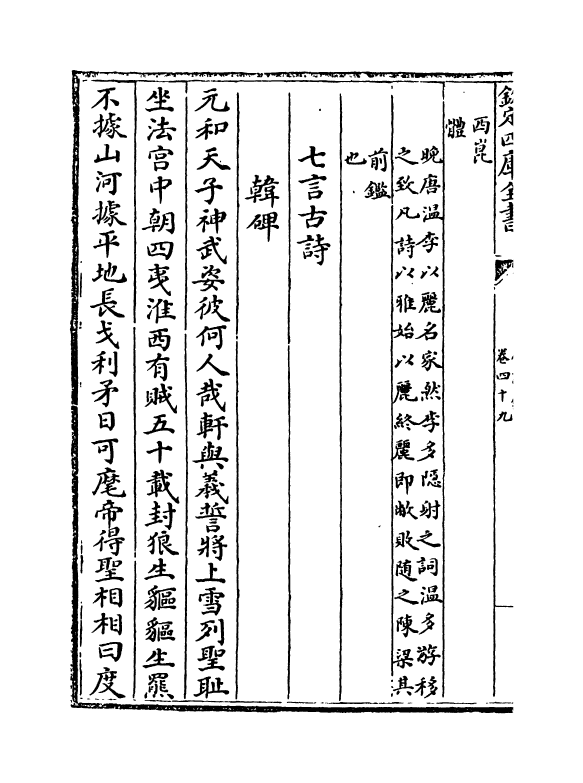 欽定四庫全書
卷四十九
西崑
體
晚唐温李以麗名家然李多隠射之詞温多游移
之致凡詩以雅始以麗終麗即敝敗随之陳梁其
前鑑
也
七言古詩
韓碑
元和天子神武姿彼何人哉軒與羲誓將上雪列聖耻
坐法宫中朝四夷淮西有賊五十載封狼生貙貙生羆
不據山河據平地長戈利矛日可麾帝得聖相相曰度